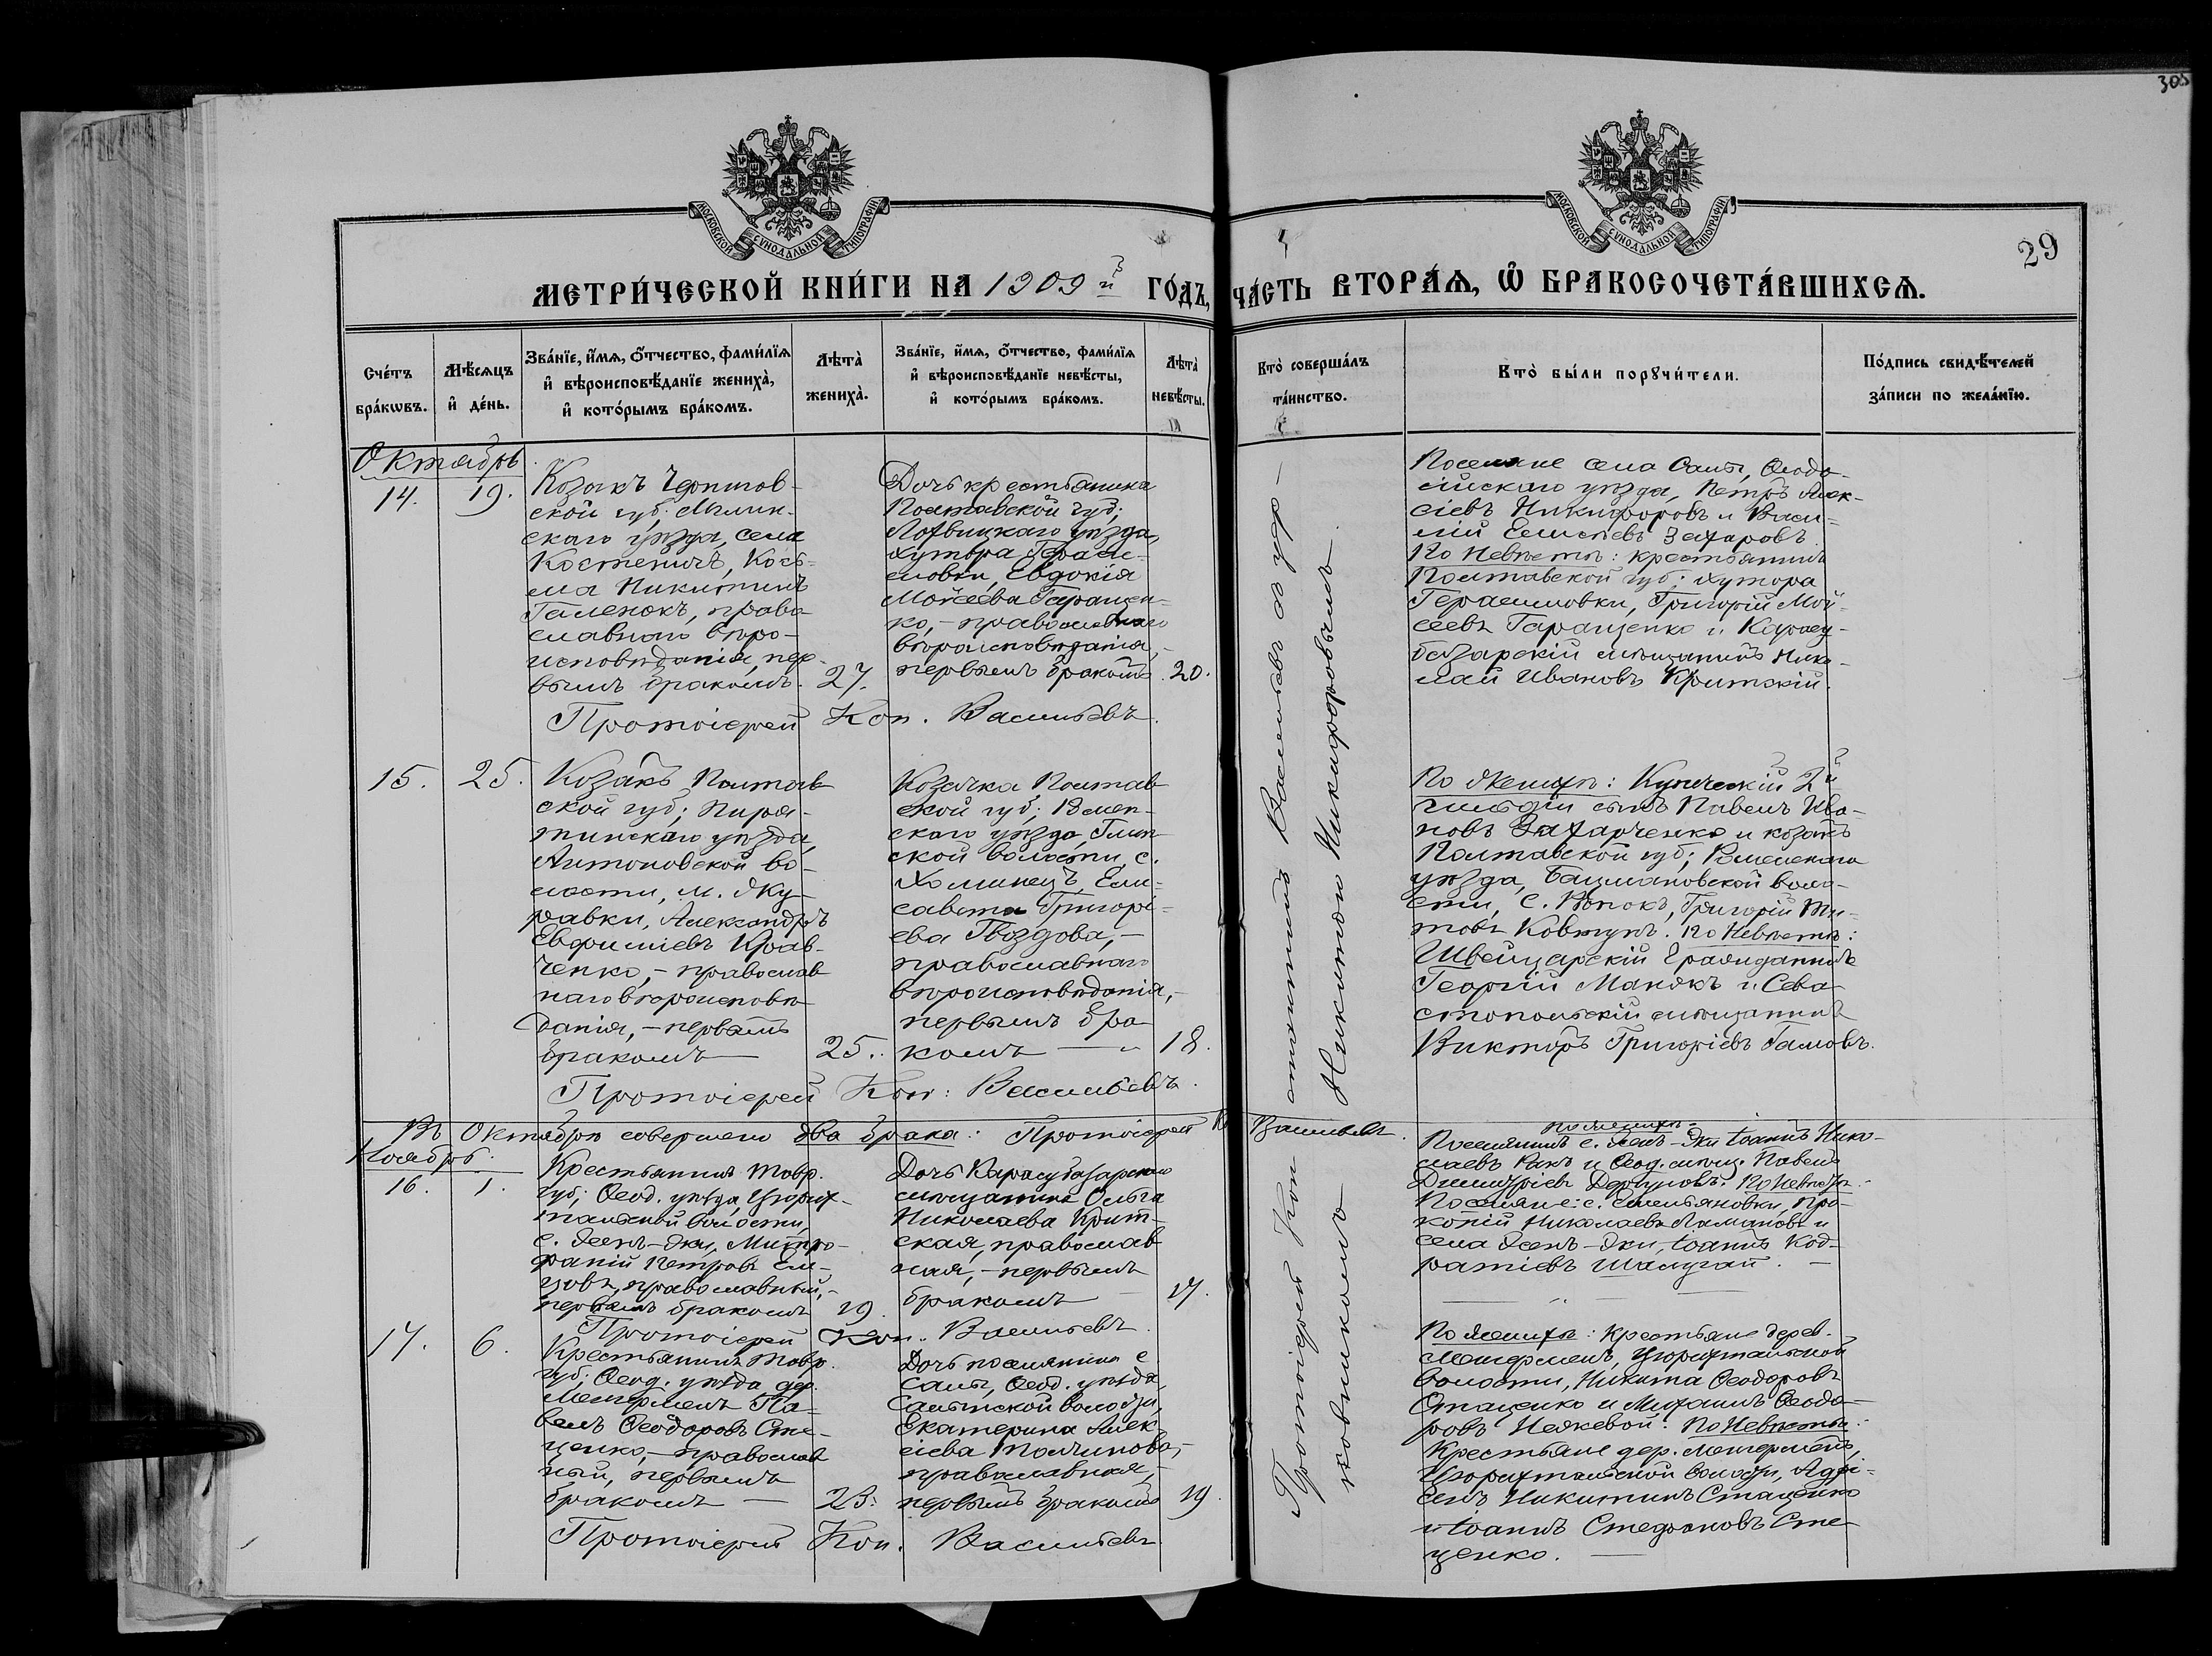 305
29
МОСКОВСКОЙ СУНОДАЛЬНОЙ ТИПОГРАФІИ
МОСКОВСКОЙ СУНОДАЛЬНОЙ ТИПОГРАФІИ
МЕТРИ́ЧЕСКОЙ КНИ́ГИ НА 1909й ГО́ДЪ, ЧА́СТЬ ВТОРА́Ѧ, Ѽ БРАКОСОЧЕТА́ВШИХСѦ.
Сче́тъ бра́кѡвъ.
Мѣ́сѧцъ и҆ де́нь.
Зва́нїе, и҆́мѧ, ѻ҆́тчество, фами́лїѧ
и҆ вѣроисповѣ́данїе жениха̀,
и҆ кото́рымъ бра́комъ.
Лѣта̀ жениха̀.
Зва́нїе, и҆́мѧ, ѻ҆́тчество, фами́лїѧ
и҆ вѣроисповѣ́данїе невѣ́сты,
и҆ кото́рымъ бра́комъ.
Лѣта̀ невѣ́сты.
Кто̀ соверша́лъ та́инство.
Кто̀ бы́ли порꙋчи́тели.
По́дпись свидѣ́телей
за́писи по жела́нїю.
Октябрь
14.
19.
Козакъ Чернигов-
ской губ; Мглин-
скаго уѣзда, села
Костеничъ, Кось-
ма Никитинъ
Галенокъ, право
славнаго вѣро-
исповѣданія, пер-
вымъ бракомъ.
27.
Дочь крестьянина
Полтавской губ;
Лохвицкаго уѣзда,
хутора Гераси-
мовки, Евдокія
Мойсеева Геращен-
ко, - православнаго
вѣроисповѣданія, -
первымъ бракомъ.
20.
Поселяне села Салы, Ѳеодо-
сійскаго уѣзда, Петръ Алек-
сіевъ Никифоровъ и Васи-
лій Захаровъ.
По Невѣстѣ: крестьянинъ
Полтавской губ; хутора
Герасимовки, Григорій Мой-
сеевъ Геращенко и Карасу-
базарскій мѣщанинъ Нико-
лай Ивановъ Критскій.
Протоіерей Кон. Васильевъ.
15.
25.
Козакъ Полтав
ской губ; Пиря-
тинскаго уѣзда,
Антоновской во-
лости, м. Жу-
равки, Александръ
Евфиміевъ Крав-
ченко, - православ
наго вѣроисповѣ
данія, - первымъ
бракомъ —
25.
Козачка Полтав
ской губ;
скаго уѣзда, Глин
ской волости, с.
Хоминецъ, Ели-
савета Григорі-
ева Гвоздова, -
православнаго
вѣроисповѣданія, -
первымъ бра
комъ —
18.
По Женихѣ: Купеческій 2й
гильдіи сынъ Павелъ Ива-
новъ Захарченко и козакъ
Полтавской губ;
уѣзда, Бацмановской воло-
сти, с. Григорій Ти-
товъ Ковтунъ. По Невѣстѣ:
Швейцарскій Гражданинъ
Георгій и Сева
стопольскій мѣщанинъ
Викторъ Григоріевъ Гамовъ.
Протоіерей Кон: Васильевъ.
Въ Октябрѣ совершено два брака: Протоіерей Васильевъ.
Ноябрь.
16.
1.
Крестьянинъ Тавр.
губ; Ѳеод. уѣзда, Цюрих-
тальской волости,
с. Митро-
фаній Петровъ
православный, -
первымъ бракомъ
19.
Дочь Карасубазарскаго
мѣщанина Ольга
Николаева Крит-
ская, православ
ная, - первымъ
бракомъ
17.
По женихѣ:
Поселянинъ с. Іоаннъ Нико-
лаевъ и Ѳеод. мѣщ. Павелъ
Димитріевъ По Невѣстѣ:
Поселяне: с. Емельяновки, Про-
копій Николаевъ и
села Іоаннъ Код-
ратіевъ Шалугай. —
Протоіерей Кон. Васильевъ.
17.
6.
Крестьянинъ Тавр.
губ; Ѳеод. уѣзда дер.
Па-
велъ Ѳеодоровъ Ста-
ценко, - православ
ный, первымъ
бракомъ —
23.
Дочь поселянина с.
Салы, Ѳеод. уѣзда,
Салынской волости,
Екатерина Алек-
сіева Толчинова, -
православная, -
первымъ бракомъ
19.
По Женихѣ: крестьяне дерев.
Цюрихтальской
волости, Никита Ѳеодоровъ
Стаценко и Михаилъ Ѳеодо-
ровъ По Невѣстѣ:
Крестьяне дер.
Цюрихтальской волости,
Никитинъ Стаценко
и Іоаннъ Стефановъ Ста-
ценко. —
Протоіерей Кон. Васильевъ
Протоіерей Кон стантинъ Васильевъ
Никитою Никифоровымъ.